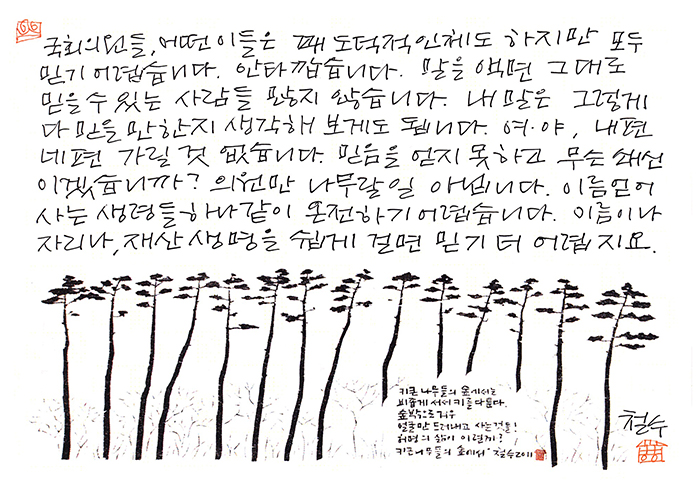 국회의원들, 어떤 이들은 꽤 도덕적인체도 하지만 모두
믿기 어렵습니다. 안타깝습니다. 말을 액면 그대로
믿을 수 있는 사람들 많지 않습니다. 내 말은 그렇게
다 믿을 만한지 생각해 보게도 됩니다. 여·야, 내편
네편 가릴 것 없습니다. 믿음을 얻지 못하고 무슨 쇄신
이겠습니까? 의원만 나무랄 일 아닙니다. 이름얻어
사는 생령들 하나같이 온전하기 어렵습니다. 이름이나
자리나, 재산 생명을 쉽게 걸면 믿기 더 어렵지요.
키큰 나무들의 숲에서는
비좁게 서서 키를 다툰다.
얼굴만 드러내고 사는 것들!
허명의 삶이 이렇게?
키큰나무들의 숲에서 철수 2011
철수